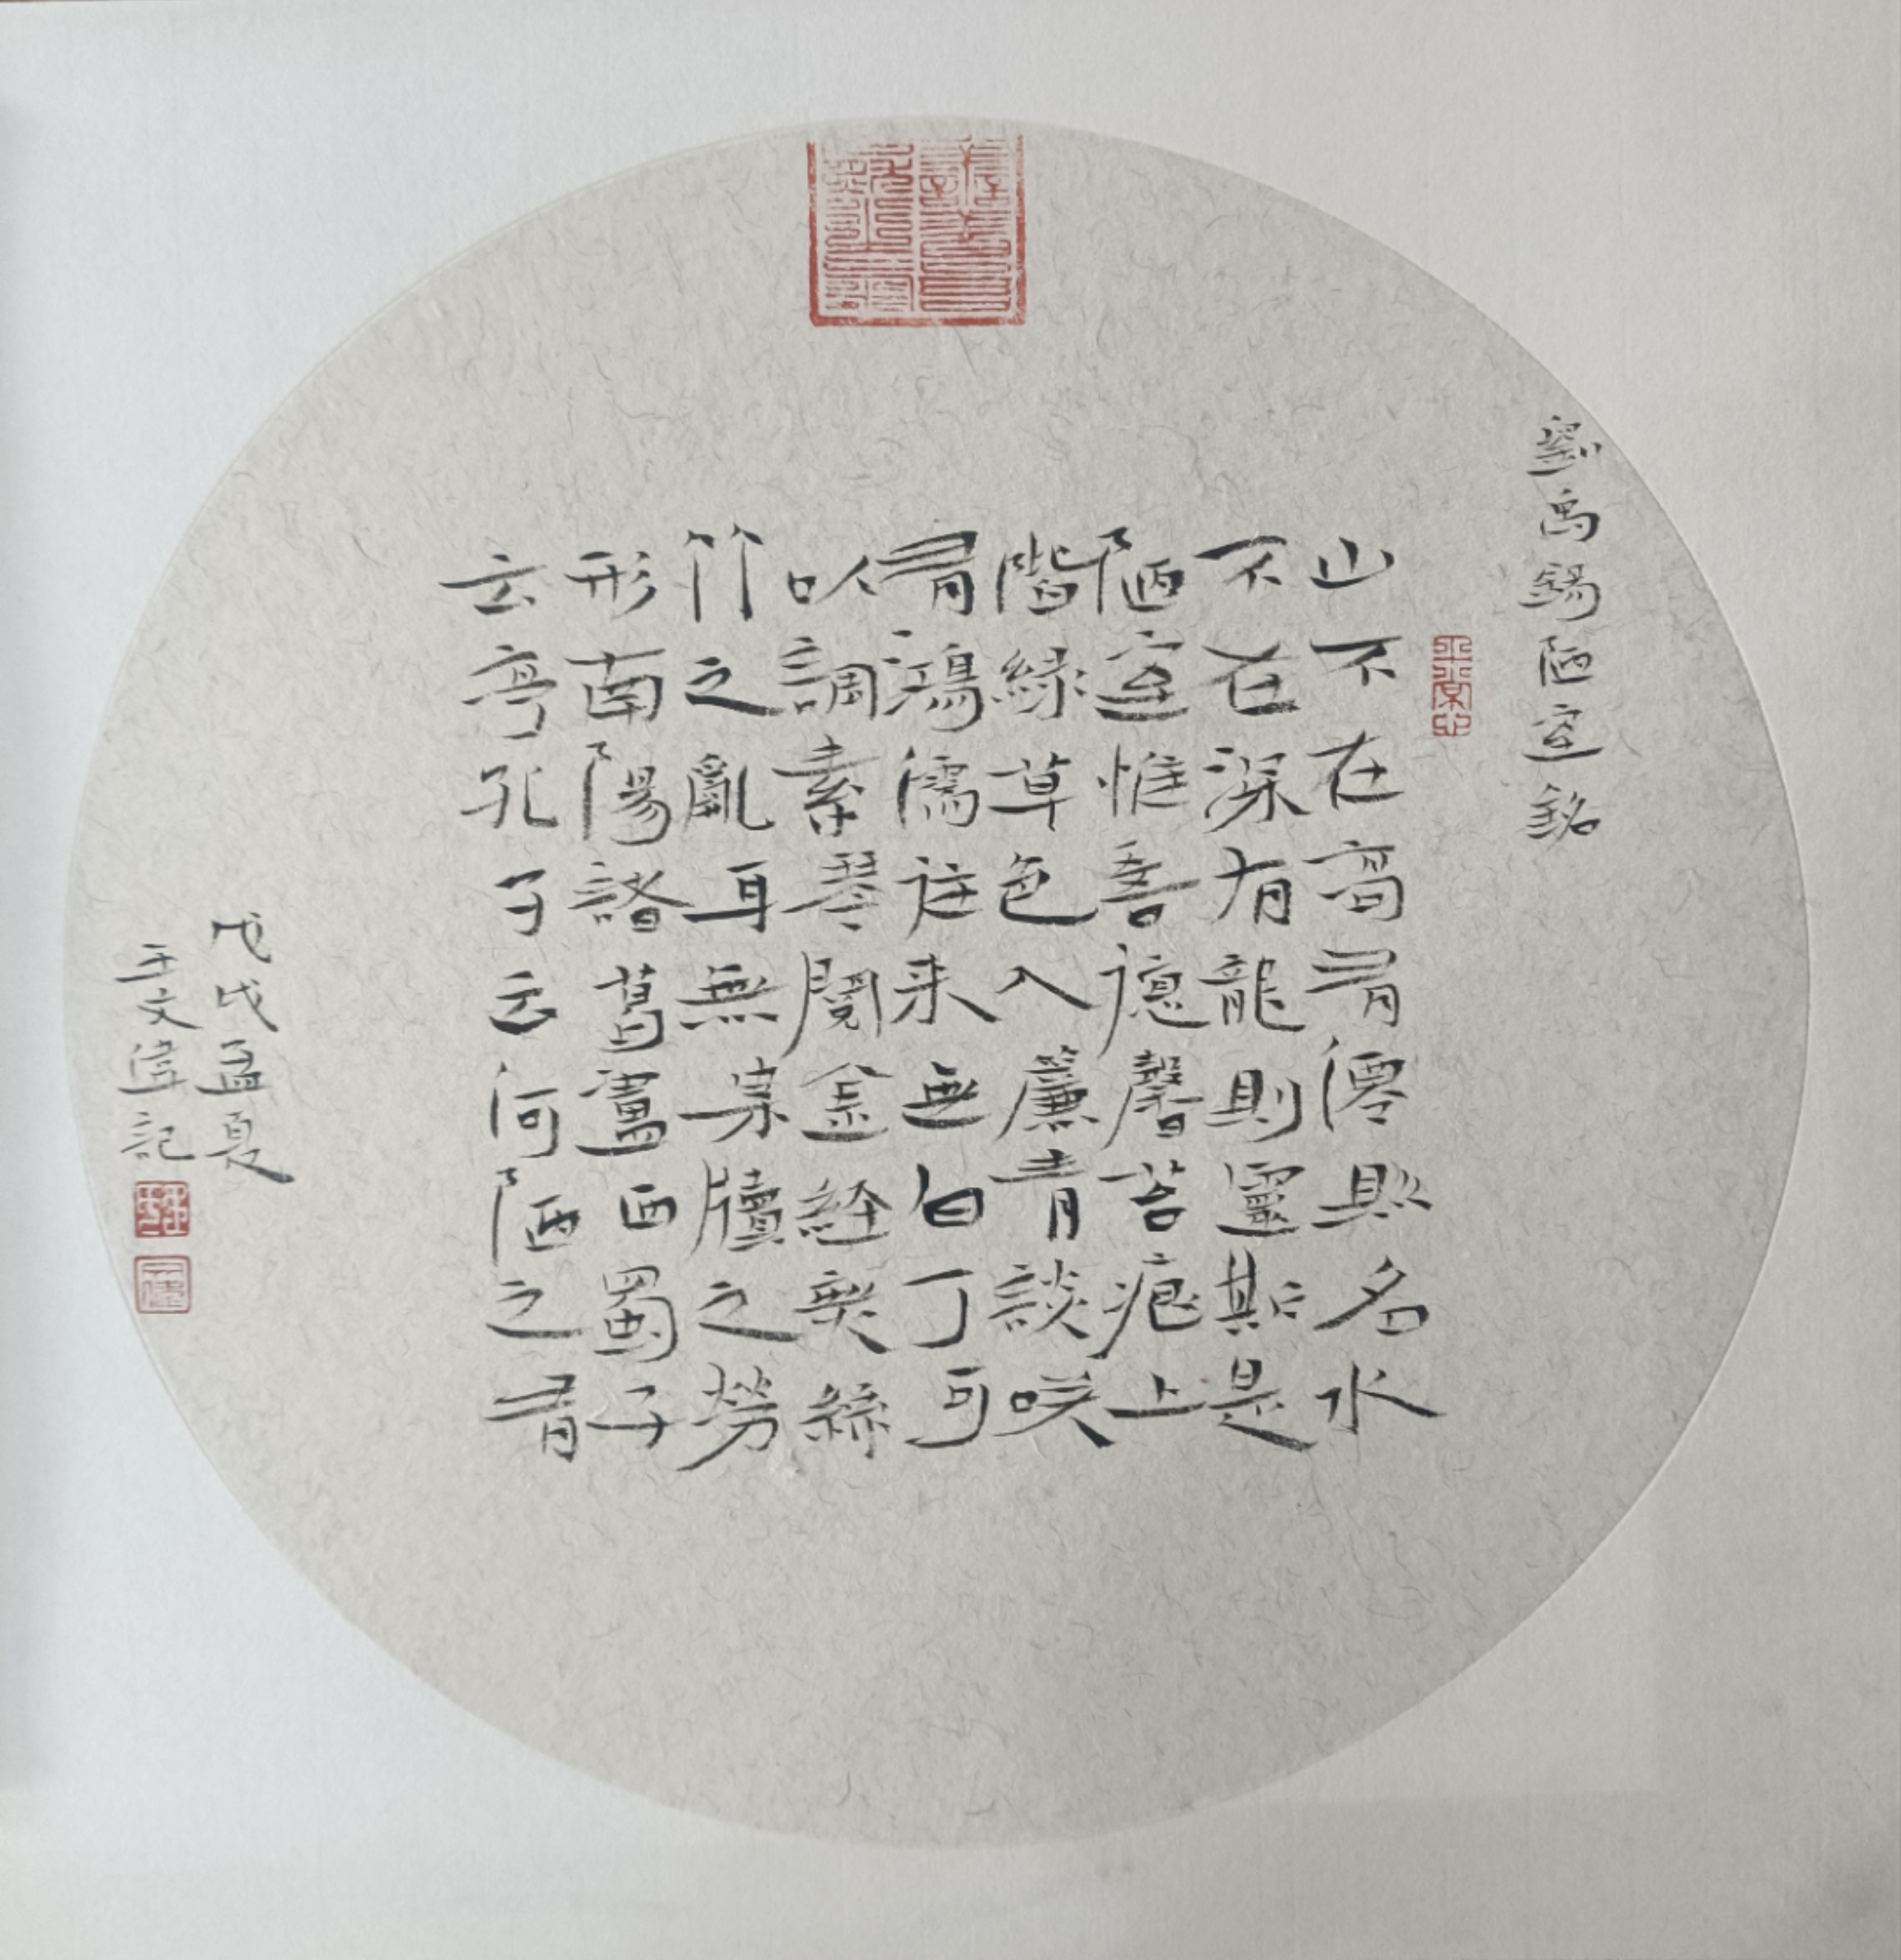 劉禹錫陋室銘
山不在高有僊則名水
不在深有龍則靈斯是
陋室惟吾德馨苔痕上
階緑草色入簾青談咲
有鴻儒往来無白丁可
以調素琴閱金経無絲
竹之亂耳無案牘之勞
形南陽諸葛廬西蜀子
云亭孔子云何陋之有
戊戌孟夏
王文偉記